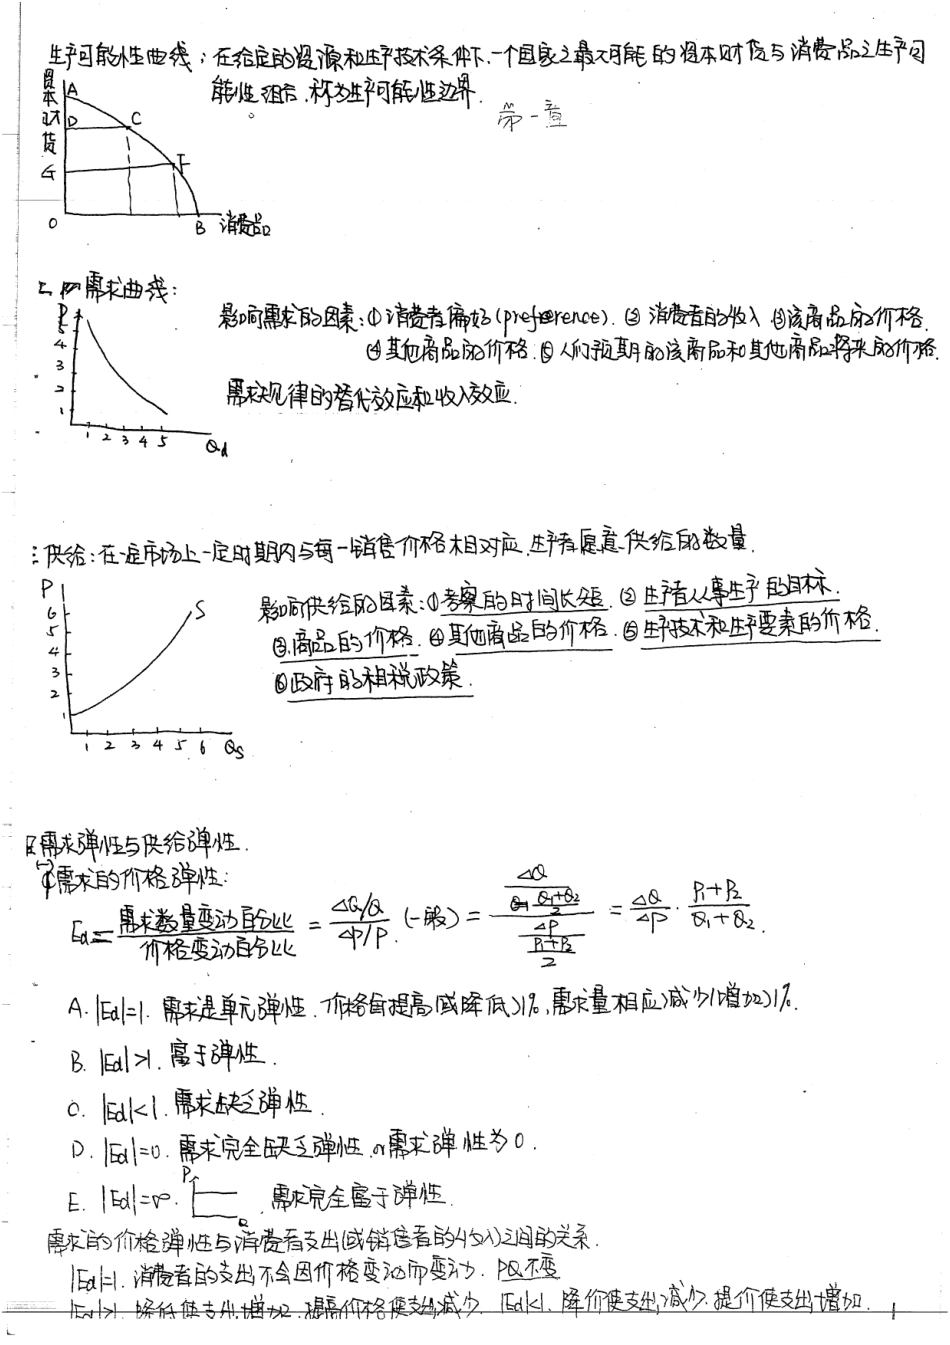 生产可能性曲线：在给定的资源和生产技术条件下，一个国家之最大可能的资本财货与消费品之生产可
能性组合，称为生产可能性边界．
第一章
资本财货
A
D
C
G
F
O
B
消费品
二、需求曲线：
P
5
4
3
2
1
1 2 3 4 5 Qd
影响需求的因素：①消费者偏好(preference)．②消费者的收入 ③该商品的价格．
④其他商品的价格．⑤人们预期的该商品和其他商品将来的价格．
需求规律的替代效应和收入效应．
三供给：在一定市场上一定时期内与每一销售价格相对应，生产者愿意供给的数量．
P
6
5
4
3
2
1
S
1 2 3 4 5 6 Qs
影响供给的因素：①考察的时间长短．②生产者从事生产的目标．
③.商品的价格．④其他商品的价格．⑤生产技术和生产要素的价格．
⑥政府的租税政策．
需求弹性与供给弹性．
(一)需求的价格弹性：
Ed = 需求数量变动百分比 / 价格变动百分比 = (△Q/Q) / (△P/P) (一般) = (△Q / ((Q1+Q2)/2)) / (△P / ((P1+P2)/2)) = △Q/△P · (P1+P2)/(Q1+Q2)．
A. |Ed|=1. 需求是单元弹性．价格每提高(或降低)1%，需求量相应减少(增加)1%．
B. |Ed|>1. 富于弹性．
C. |Ed|<1. 需求缺乏弹性．
D. |Ed|=0. 需求完全缺乏弹性 or 需求弹性为0．
E. |Ed|=∞. P Q 需求完全富于弹性．
需求的价格弹性与消费者支出(或销售者的收入)之间的关系．
|Ed|=1. 消费者的支出不会因价格变动而变动．PQ不变
|Ed|>1. 降低使支出增加．提高价格使支出减少．|Ed|<1. 降价使支出减少．提价使支出增加．
1